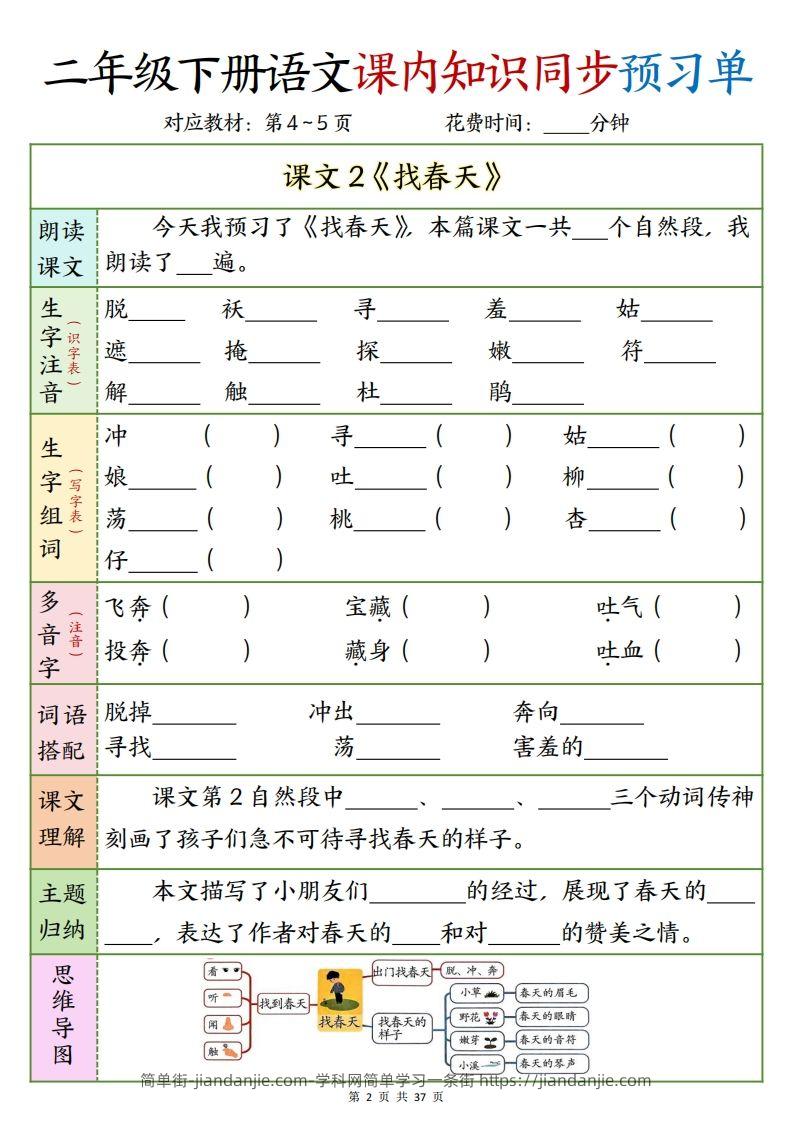 二年级下册语文课内知识同步预习单
对应教材：第4~5页 花费时间：____分钟
课文2《找春天》
朗读课文
今天我预习了《找春天》，本篇课文一共___个自然段，我
朗读了___遍。
生字注音（识字表）
脱_____ 袄______ 寻______ 羞______ 姑______
遮______ 掩______ 探______ 嫩______ 符______
解______ 触______ 杜______ 鹃______
生字组词（写字表）
冲 （ ） 寻______（ ） 姑______（ ）
娘______（ ） 吐______（ ） 柳______（ ）
荡______（ ） 桃______（ ） 杏______（ ）
仔______（ ）
多音字（注音）
飞奔（ ） 宝藏（ ） 吐气（ ）
投奔（ ） 藏身（ ） 吐血（ ）
词语搭配
脱掉_______ 冲出_______ 奔向_______
寻找_______ 荡_______ 害羞的_______
课文理解
课文第2自然段中______、______、______三个动词传神
刻画了孩子们急不可待寻找春天的样子。
主题归纳
本文描写了小朋友们________的经过，展现了春天的____
____，表达了作者对春天的____和对______的赞美之情。
思维导图
看
听
闻
触
找到春天
找春天
出门找春天
脱、冲、奔
找春天的
样子
小草
春天的眉毛
野花
春天的眼睛
嫩芽
春天的音符
小溪
春天的琴声
简单街-jiandanjie.com-学科网简单学习一条街 https://jiandanjie.com
第 2 页 共 37 页